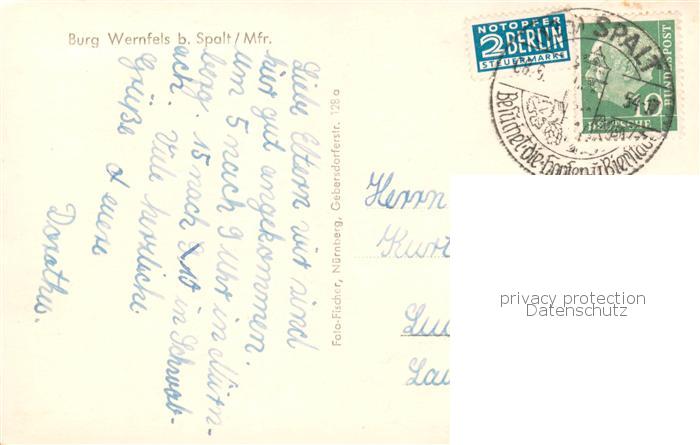 Burg Wernfels b. Spalt / Mfr.
Liebe Eltern wir sind
hir gut angekommen.
um 5 nach 9 Uhr in Nürn-
berg. 15 nach 10 in Schwab-
ach. Viele herzliche
Grüße
eure
Dorothea.
Foto-Fischer, Nürnberg, Gebersdorferstr. 128 a
NOTOPFER
2 BERLIN
STEUERMARKE
SPALT
54
Besuchet die Hopfen u. Bierstadt
10
DEUTSCHE
BUNDESPOST
Herrn
Kurt
privacy protection
Datenschutz